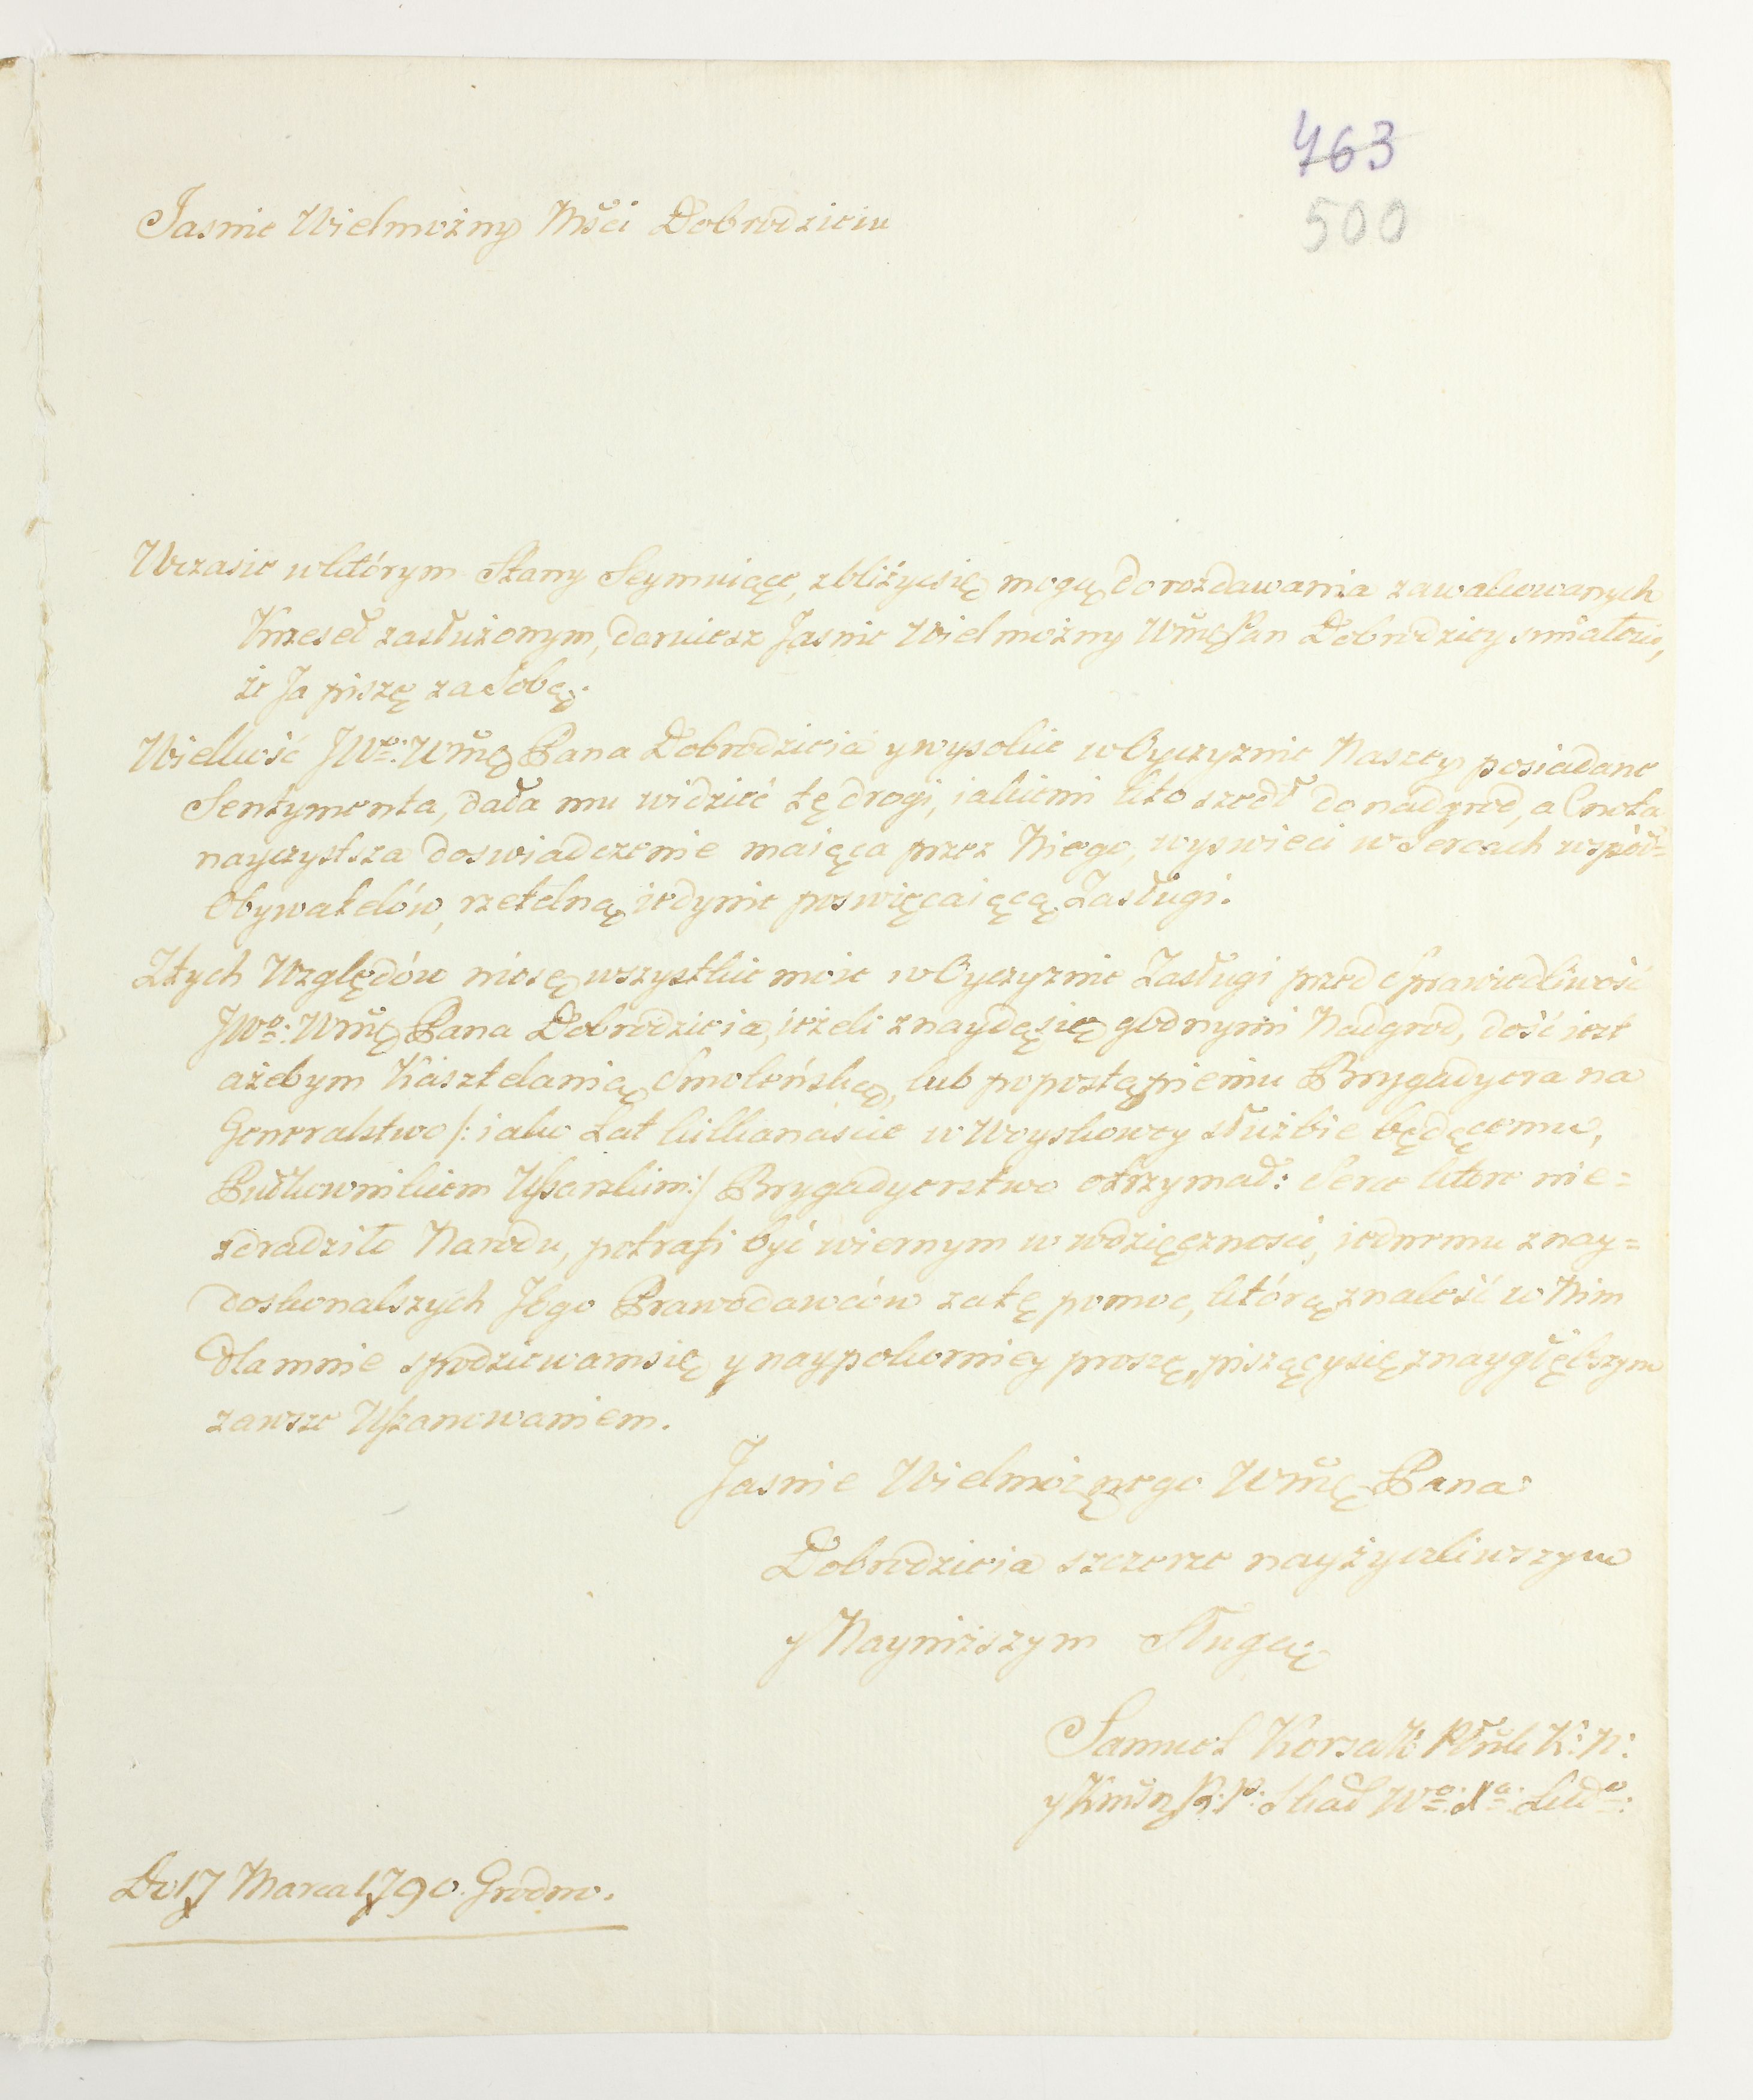 463
500
Jasnie Wielmożny Mści Dobrodzieiu
Wczasie wktórym Stany Seymuiące, zbliżycsię mogą do rozdawania zawakowanych
Krzeseł zasłużonym, daruiesz Jasnie Wielmożny WMć Pan Dobrodziey smiałości,
że Ja piszę za Sobą.
Wielkość JWo: WMć Pana Dobrodzieia y wysokie w Oyczyznie Naszey posiadane
Sentymenta, dała mu widzieć tę drogi, iakiemi kto szedł do nadgrod, a Cnota
nayczystsza doswiadczenie maiąca przez Niego, wyswieci w Sercach wspoł=
Obywatelów, rzetelną iedynie poswięcaiącą Zasługi.
Ztych Względów niosę wszystkie moie w Oyczyznie Zasługi przed Sprawiedliwość
JWo: WMć Pana Dobrodzieia, ieżeli znaydą się godnymi Nadgrod, dość iest
ażebym Kasztelanią Smoleńską, lub popostąpieniu Brygadyera na
Generalstwo /: iako Lat kilkanascie w Woyskowey służbie będącemu,
Pułkownikiem Ussarskim:/ Brygadyerstwo otrzymał: Serce ktore nie=
zdradziło Narodu, potrafi być wiernym w wdzięcznosci, iednemu z nay=
doskonalszych Jego Prawodawców za tę pomoc, którą znaleść w Nim
dla mnie spodziewamsię y naypokorniey proszę, piszący się znaygłębszym
zawsze Uszanowaniem.
Jasnie Wielmożnego WMć Pana
Dobrodzieia szczerze nayżyczliwszym
y Nayniższym Sługą
Samuel Korsak Płuk K: N:
y Kmsrz R: P: Skar Wo: Xo: Litto:
D 17 Marca 1790. Grodno.